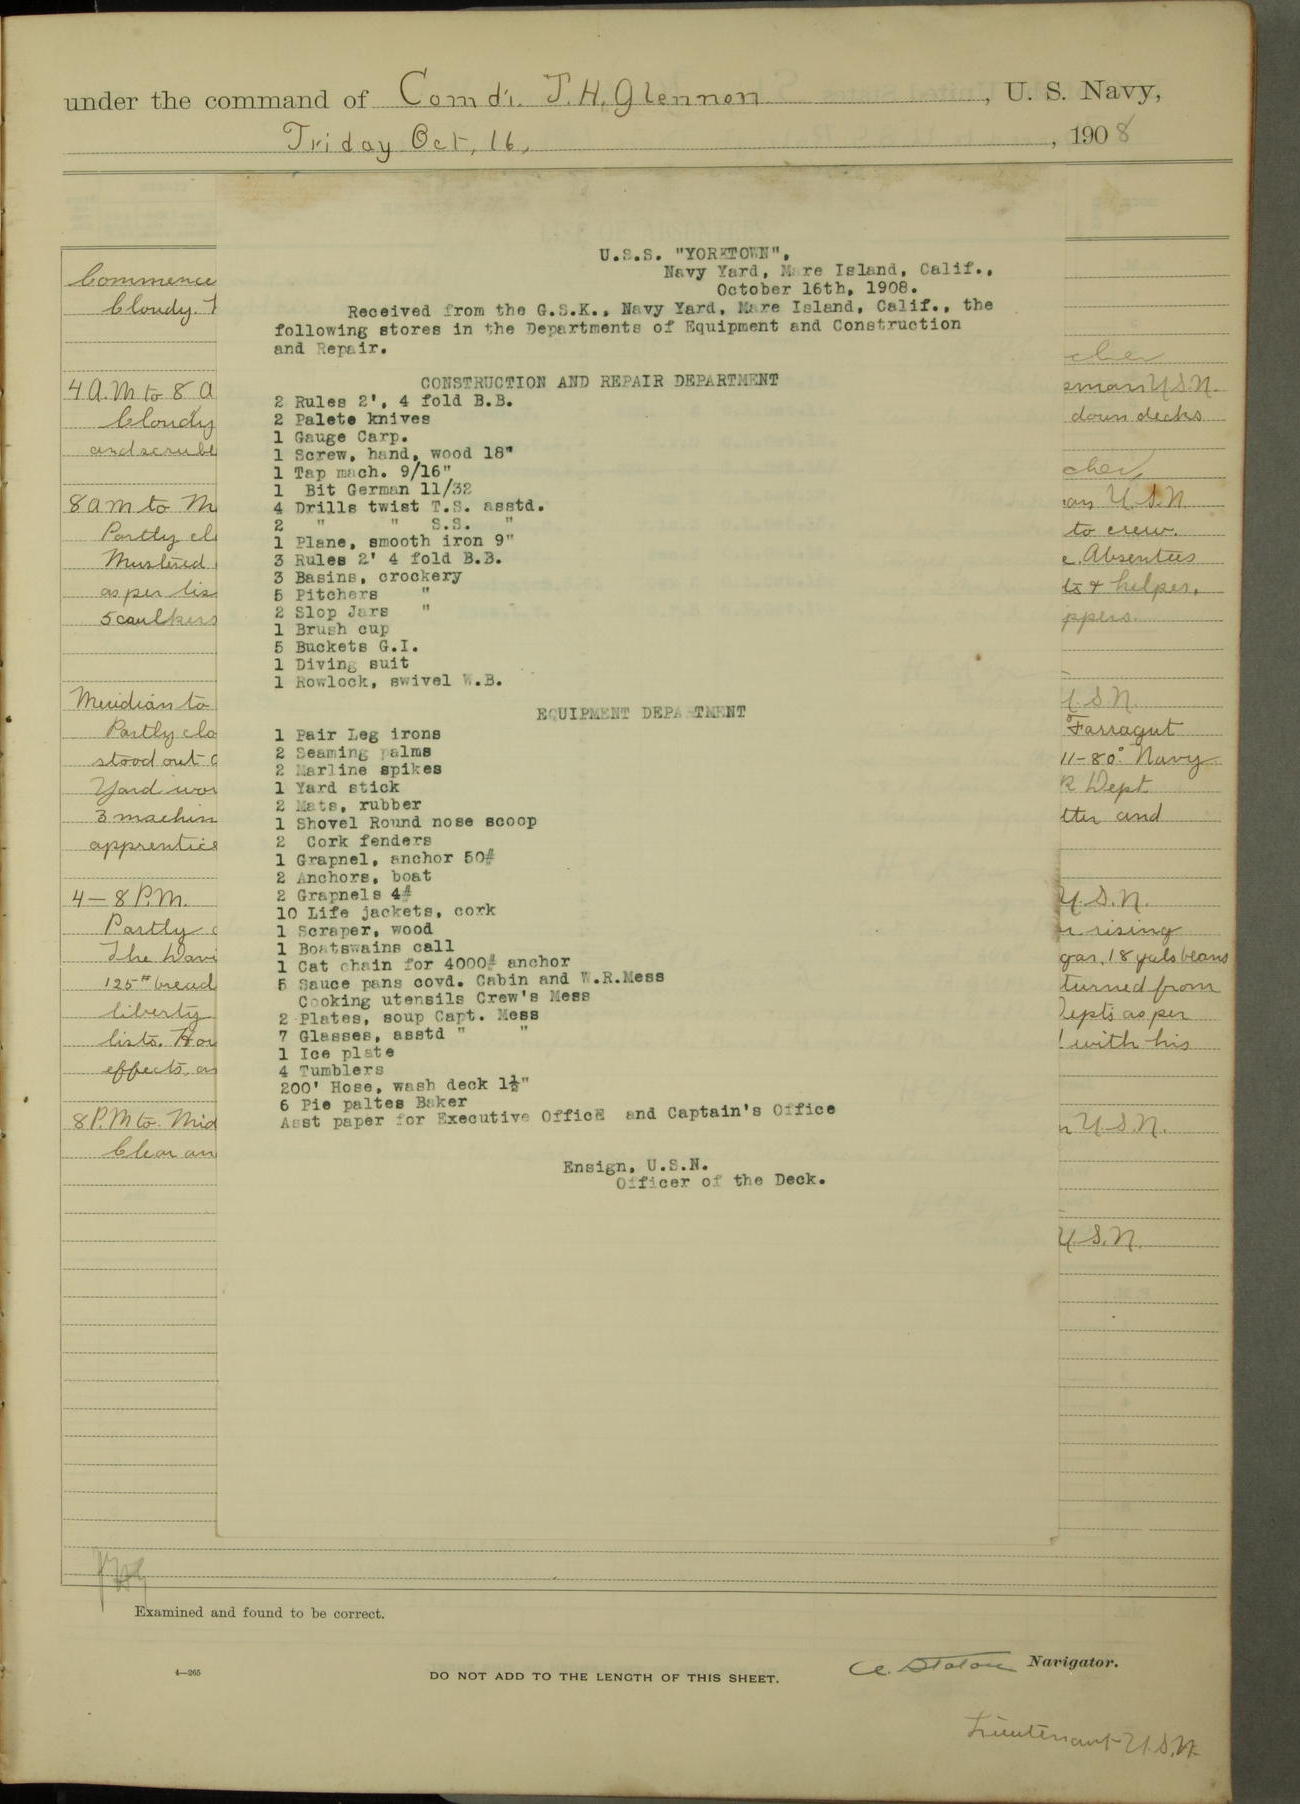 under the command of Com'd'r. J.H. Glennon, U. S. Navy,
Friday Oct. 16, , 1908
U.S.S. "YORKTOWN",
Navy Yard, Mare Island, Calif.,
October 16th, 1908.
Received from the G.S.K., Navy Yard, Mare Island, Calif., the
following stores in the Departments of Equipment and Construction
and Repair.
CONSTRUCTION AND REPAIR DEPARTMENT
2 Rules 2', 4 fold B.B.
2 Palete knives
1 Gauge Carp.
1 Screw, hand, wood 18"
1 Tap mach. 9/16"
1 Bit German 11/32
4 Drills twist T.S. asstd.
2 " " S.S. "
1 Plane, smooth iron 9"
3 Rules 2' 4 fold B.B.
3 Basins, crockery
5 Pitchers "
2 Slop Jars "
1 Brush cup
5 Buckets G.I.
1 Diving suit
1 Rowlock, swivel W.B.
EQUIPMENT DEPARTMENT
1 Pair Leg irons
2 Seaming palms
2 Marline spikes
1 Yard stick
2 Mats, rubber
1 Shovel Round nose scoop
2 Cork fenders
1 Grapnel, anchor 50#
2 Anchors, boat
2 Grapnels 4#
10 Life jackets, cork
1 Scraper, wood
1 Boatswains call
1 Cat chain for 4000# anchor
5 Sauce pans covd. Cabin and W.R.Mess
Cooking utensils Crew's Mess
2 Plates, soup Capt. Mess
7 Glasses, asstd " "
1 Ice plate
4 Tumblers
200' Hose, wash deck 1½"
6 Pie paltes Baker
Asst paper for Executive Office and Captain's Office
Ensign, U.S.N.
Officer of the Deck.
Commence
Cloudy.
4 A.M to 8 A
man U.S.N.
Cloudy
down decks
and scrube
8 am to M
U.S.N
Partly cl
to crew.
Mustered
Absentees
as per lis
& helper,
5 caulkers
Meridian to
U.S.N.
Partly clo
Farragut
stood out
11-80° Navy
Yard wor
R Dept
3 machin
tter and
apprentice
4 — 8 P.M.
U.S.N.
Partly
rising
The Navi
gar, 18 gals beans
125# bread
turned from
liberty
Depts as per
lists.
with his
effects, as
8 P.M to Mid
U.S.N.
Clear an
U.S.N.
Examined and found to be correct.
4—265
DO NOT ADD TO THE LENGTH OF THIS SHEET.
A. Staton Navigator.
Lieutenant U.S.N.